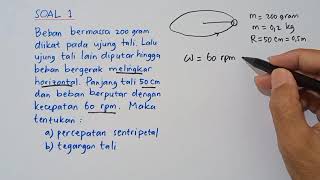 SOAL 1
Beban bermassa 200 gram
diikat pada ujung tali. Lalu
ujung tali lain diputar hingga
beban bergerak melingkar
horizontal. Panjang tali 50 cm
dan beban berputar dengan
kecepatan 60 rpm. Maka
tentukan :
a) percepatan sentripetal
b) tegangan tali
m = 200 gram
m = 0,2 kg
R = 50 cm = 0,5m
ω = 60 rpm